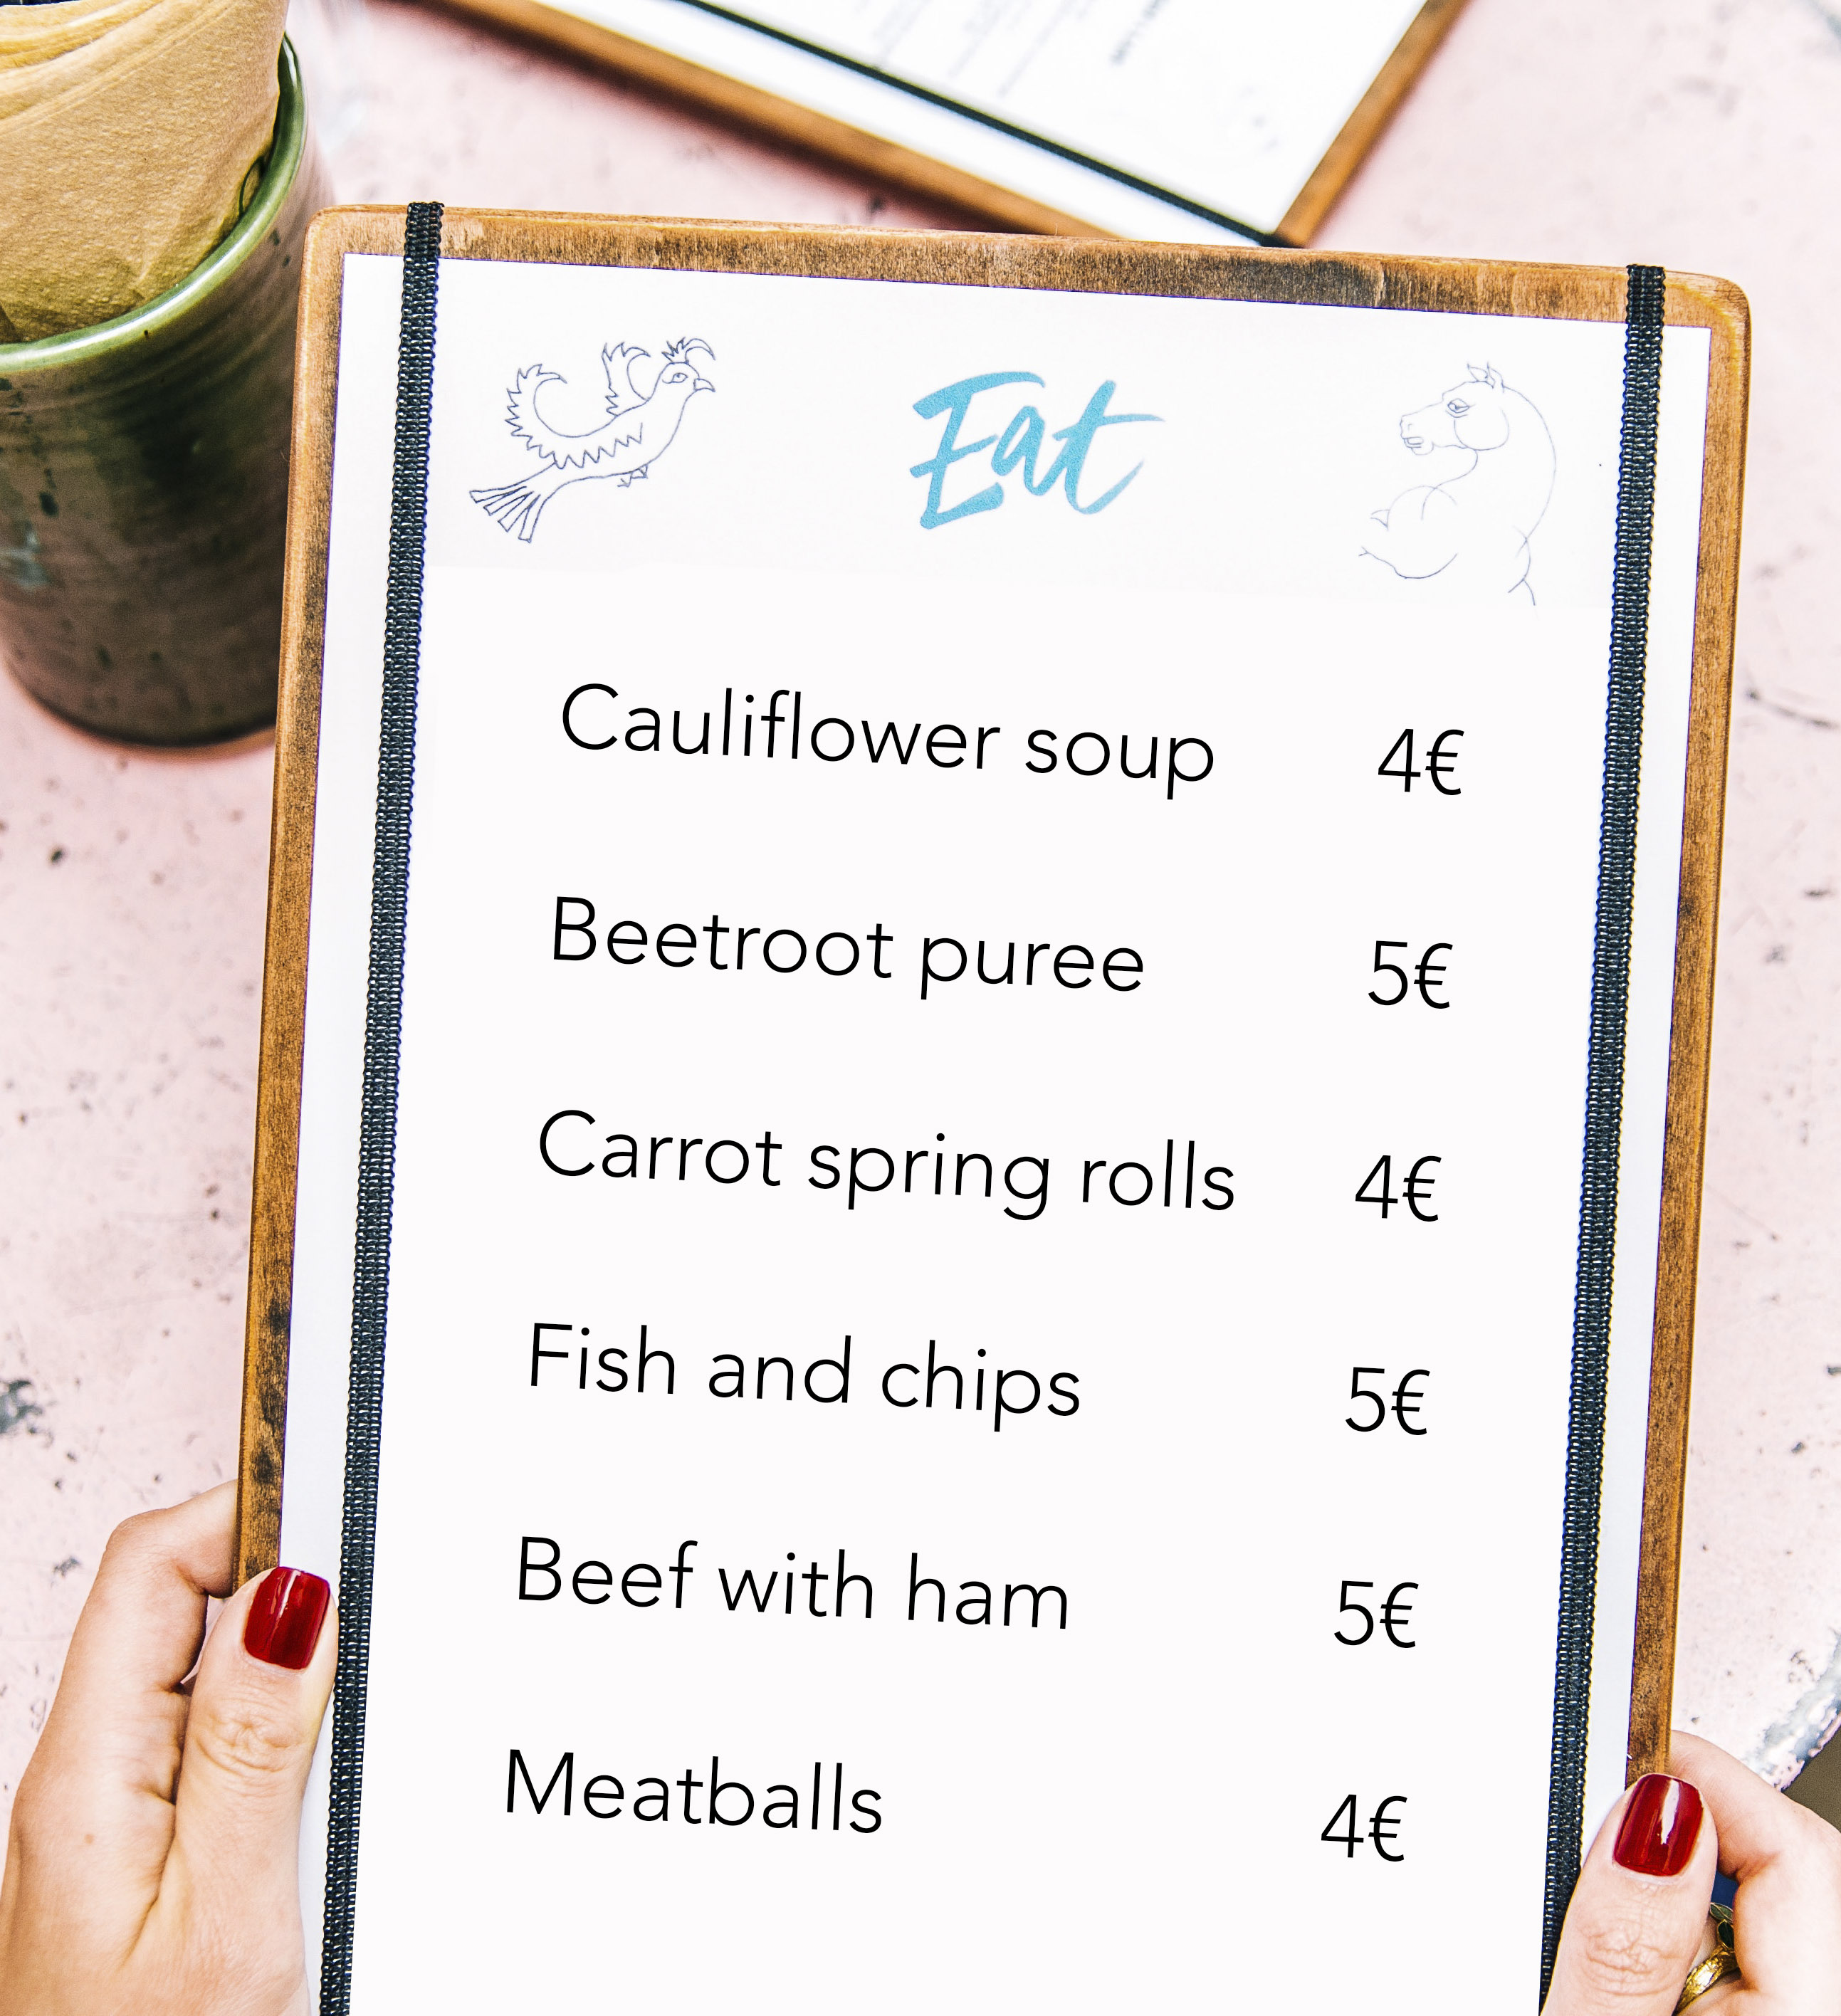 Eat
Cauliflower soup 4€
Beetroot puree 5€
Carrot spring rolls 4€
Fish and chips 5€
Beef with ham 5€
Meatballs 4€